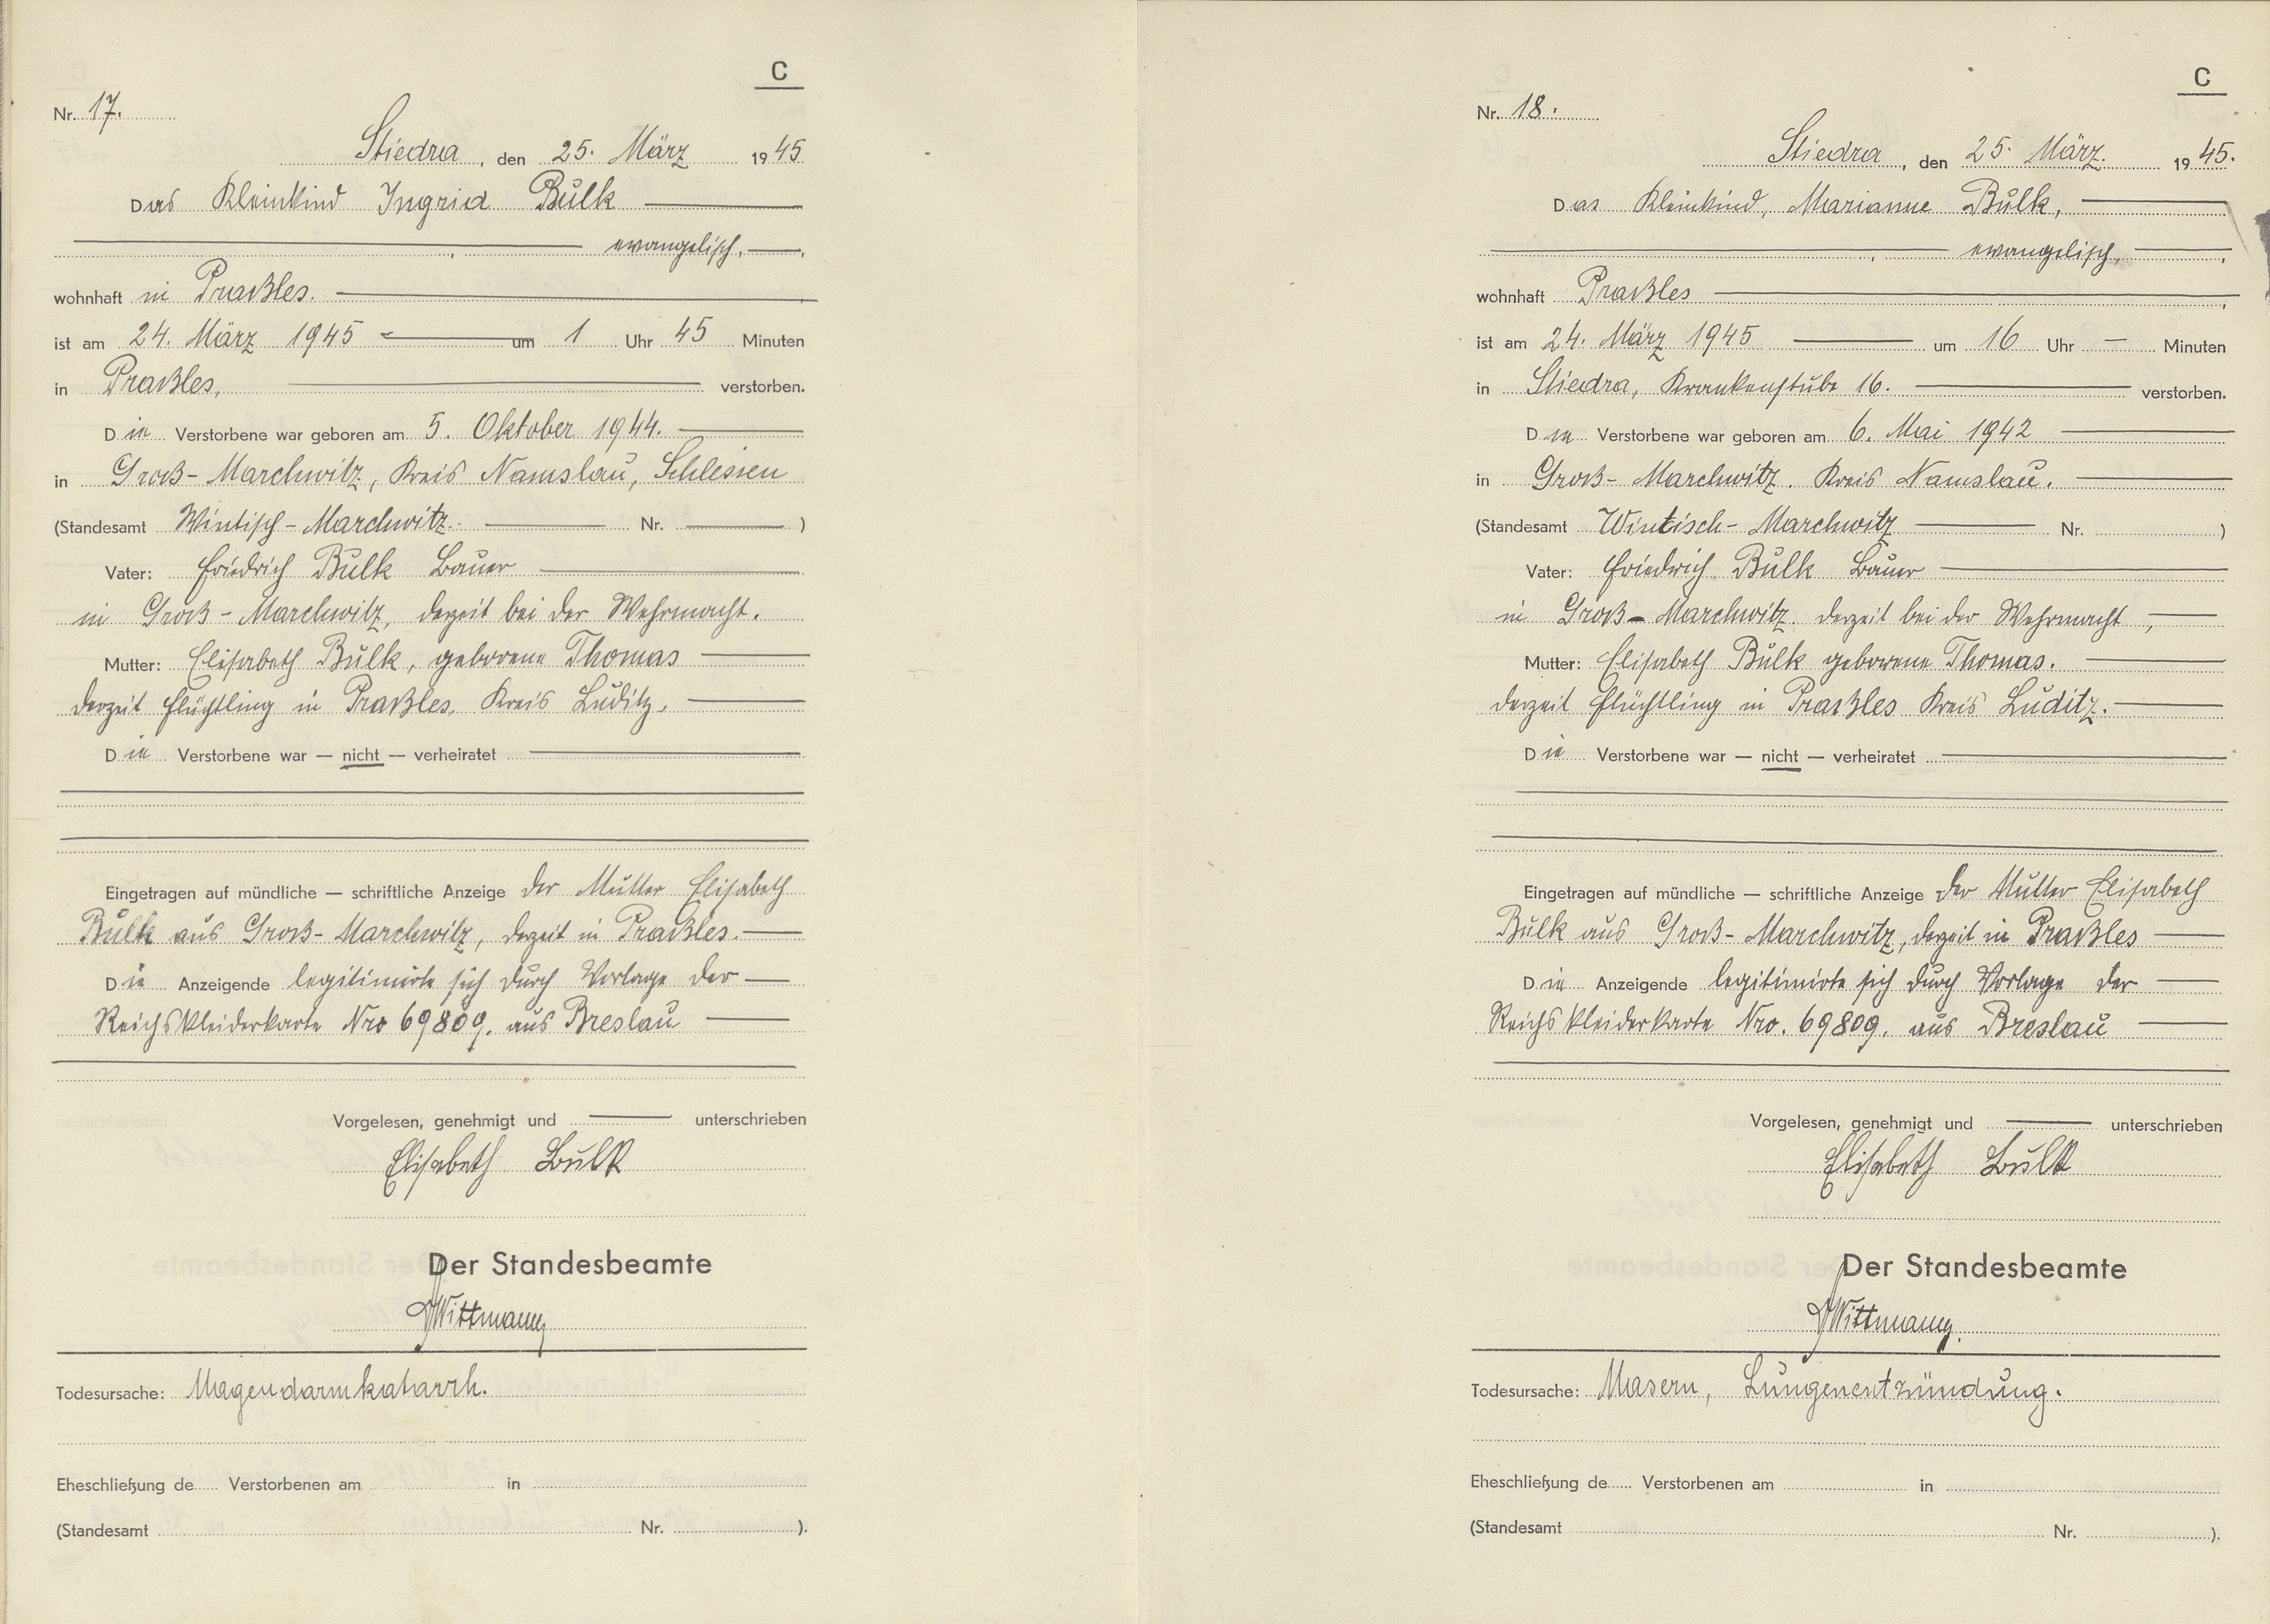 C
Nr. 17.
Stiedra, den 25. März 1945
Das Kleinkind Ingrid Bulk
evangelisch,
wohnhaft in Praßles.
ist am 24. März 1945 um 1 Uhr 45 Minuten
in Praßles, verstorben.
Die Verstorbene war geboren am 5. Oktober 1944.
in Groß-Marchwitz, Kreis Namslau, Schlesien
(Standesamt Wintisch-Marchwitz. Nr. )
Vater: Friedrich Bulk Bauer
in Groß-Marchwitz, derzeit bei der Wehrmacht.
Mutter: Elisabeth Bulk, geborene Thomas
derzeit Flüchtling in Praßles, Kreis Luditz,
Die Verstorbene war — nicht — verheiratet
Eingetragen auf mündliche — schriftliche Anzeige der Mutter Elisabeth
Bulk aus Groß-Marchwitz, derzeit in Praßles.
Die Anzeigende legitimirte sich durch Vorlage der
Reichskleiderkarte Nro 69809. aus Breslau
Vorgelesen, genehmigt und unterschrieben
Elisabeth Bulk
Der Standesbeamte
Wittmann
Todesursache: Magendarmkatarrh.
Eheschließung de Verstorbenen am in
(Standesamt Nr. ).
C
Nr. 18.
Stiedra, den 25. März. 1945.
Das Kleinkind, Marianne Bulk,
evangelisch,
wohnhaft Praßles
ist am 24. März 1945 um 16 Uhr — Minuten
in Stiedra, Krankenstube 16. verstorben.
Die Verstorbene war geboren am 6. Mai 1942
in Groß-Marchwitz. Kreis Namslau.
(Standesamt Wintisch-Marchwitz Nr. )
Vater: Friedrich Bulk Bauer
in Groß-Marchwitz. derzeit bei der Wehrmacht,
Mutter: Elisabeth Bulk geborene Thomas.
derzeit Flüchtling in Praßles Kreis Luditz.
Die Verstorbene war — nicht — verheiratet
Eingetragen auf mündliche — schriftliche Anzeige der Mutter Elisabeth
Bulk aus Groß-Marchwitz, derzeit in Praßles
Die Anzeigende legitimirte sich durch Vorlage der
Reichskleiderkarte Nro. 69809. aus Breslau
Vorgelesen, genehmigt und unterschrieben
Elisabeth Bulk
Der Standesbeamte
Wittmann
Todesursache: Masern, Lungenentzündung.
Eheschließung de Verstorbenen am in
(Standesamt Nr. ).